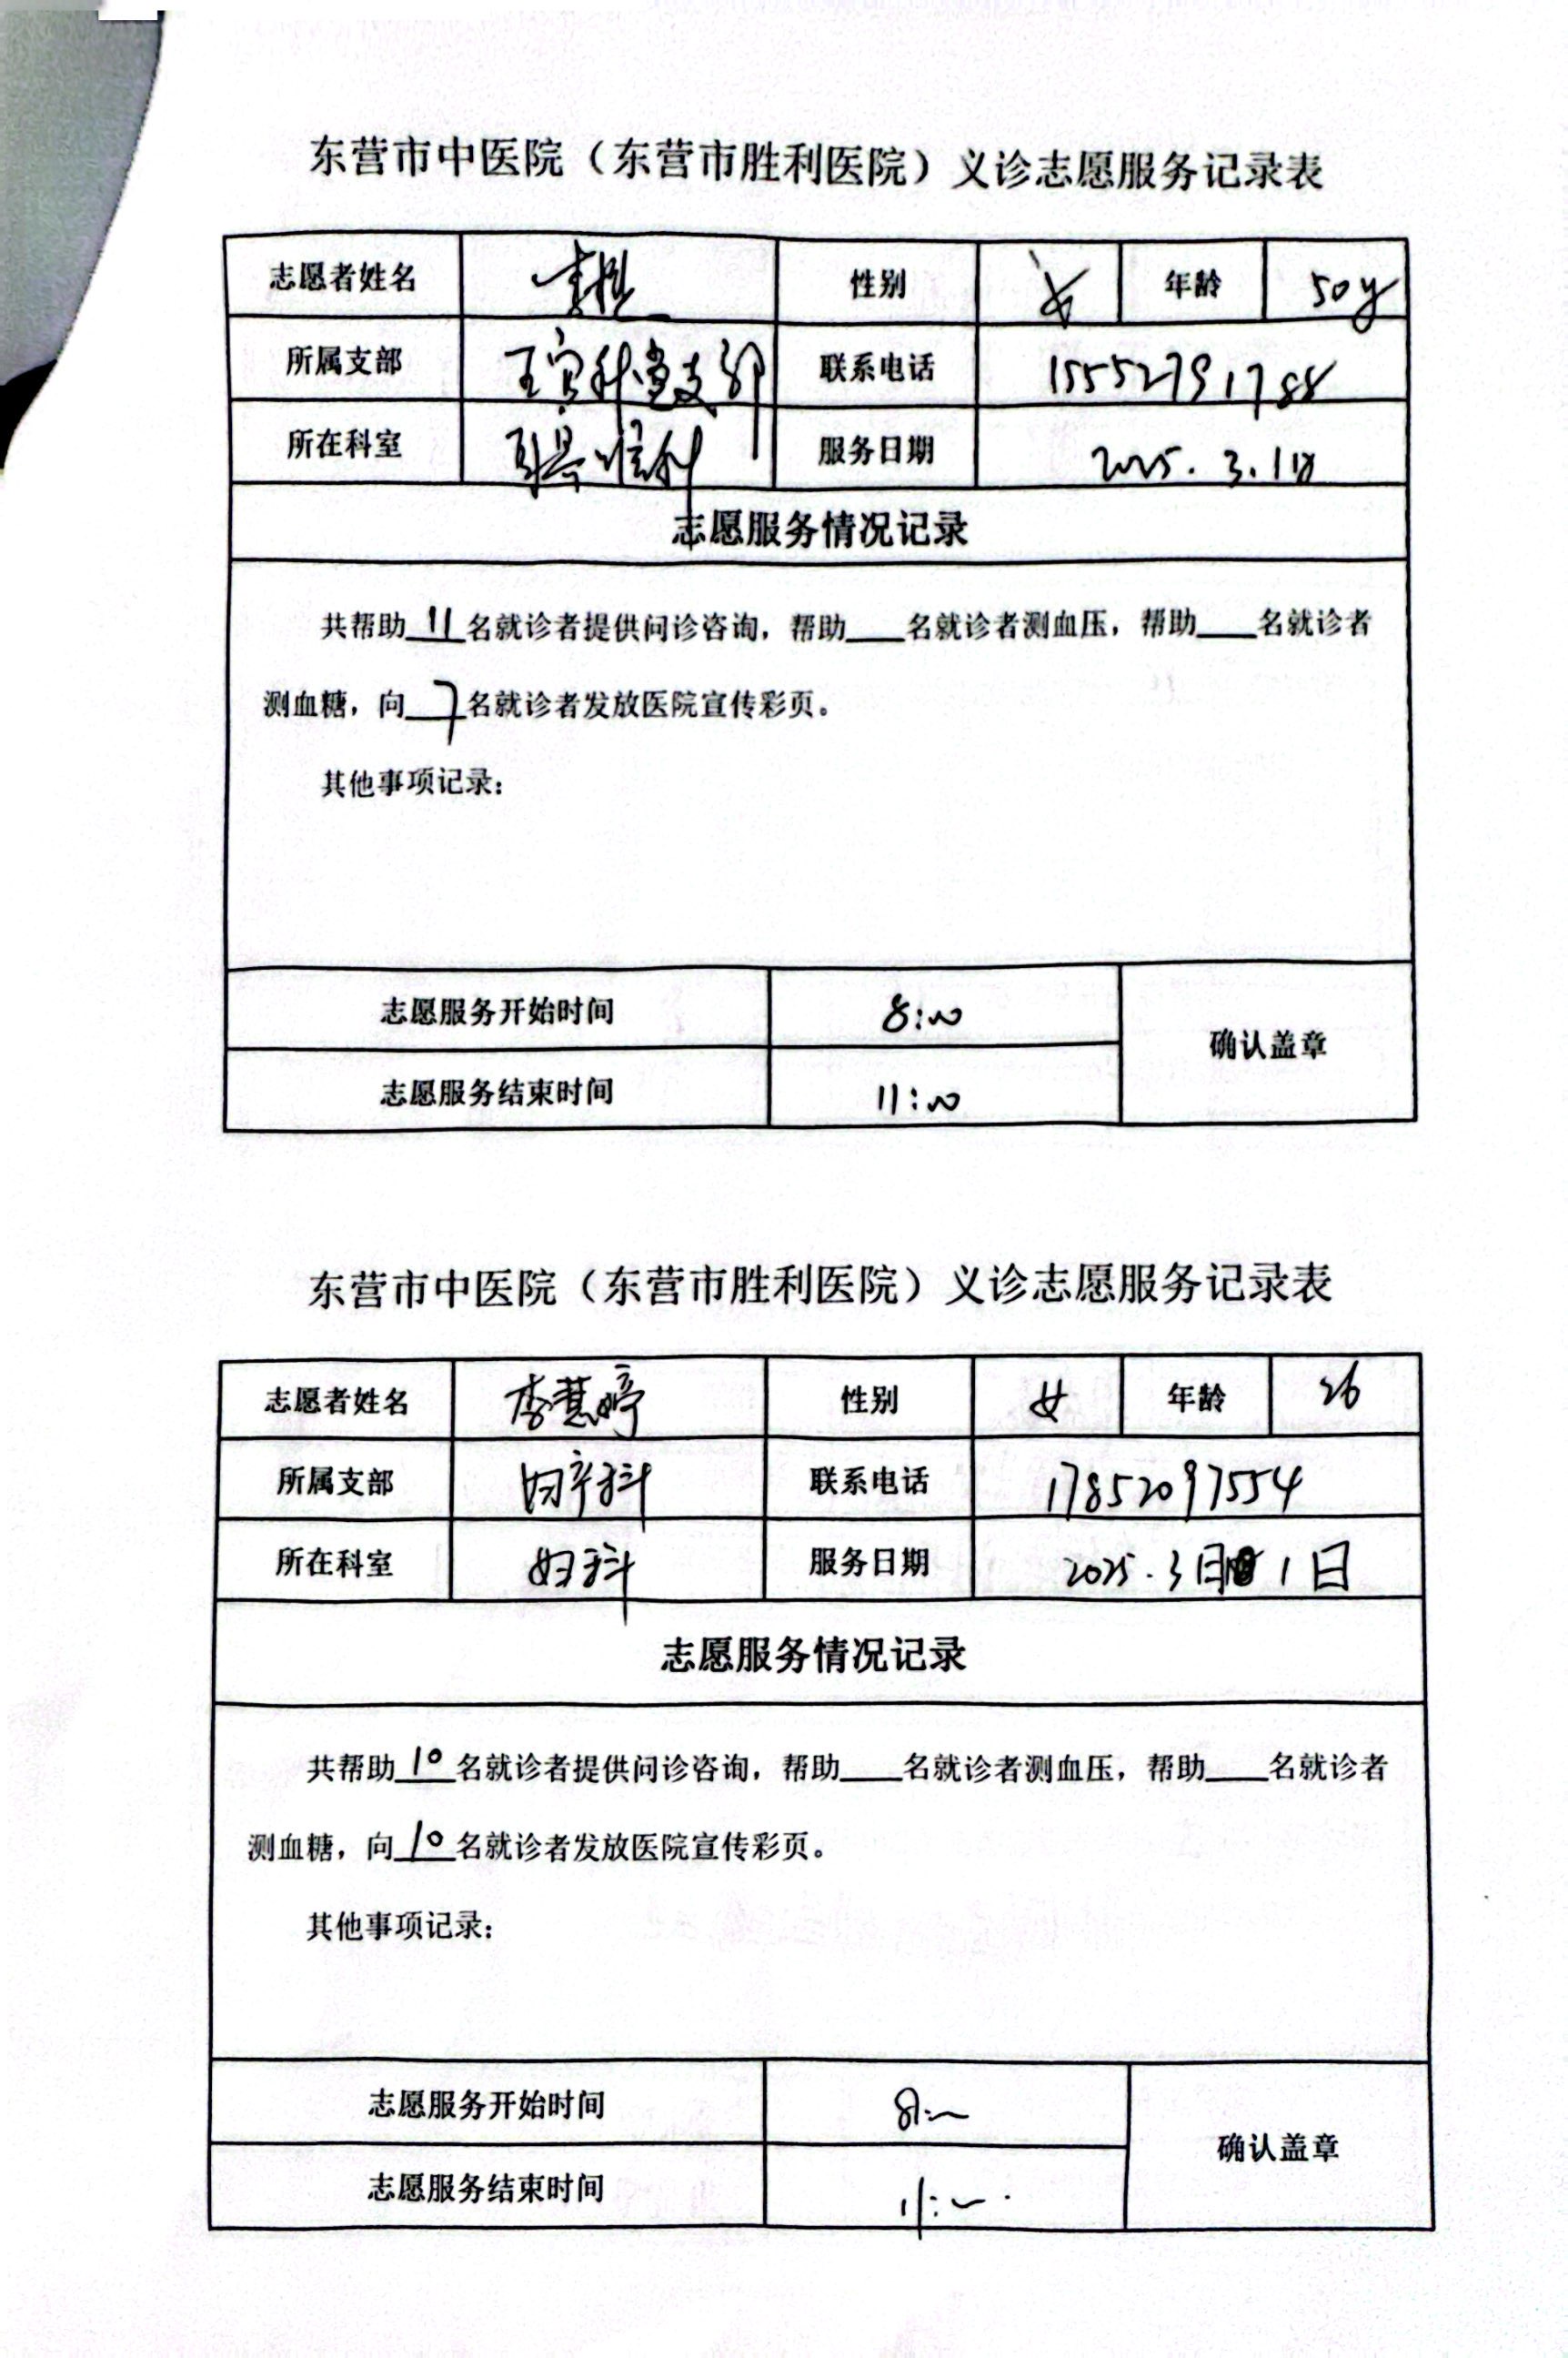 东营市中医院（东营市胜利医院）义诊志愿服务记录表
志愿者姓名 李 性别 女 年龄 50y
所属支部 支部 联系电话 15552791788
所在科室 耳鼻喉科 服务日期 2025.3.1
志愿服务情况记录
共帮助11名就诊者提供问诊咨询，帮助___名就诊者测血压，帮助___名就诊者
测血糖，向7名就诊者发放医院宣传彩页。
其他事项记录：
志愿服务开始时间 8:00
确认盖章
志愿服务结束时间 11:00
东营市中医院（东营市胜利医院）义诊志愿服务记录表
志愿者姓名 李慧婷 性别 女 年龄 26
所属支部 妇产科 联系电话 17852097554
所在科室 妇科 服务日期 2025.3月1日
志愿服务情况记录
共帮助10名就诊者提供问诊咨询，帮助___名就诊者测血压，帮助___名就诊者
测血糖，向10名就诊者发放医院宣传彩页。
其他事项记录：
志愿服务开始时间 8:00
确认盖章
志愿服务结束时间 11:00